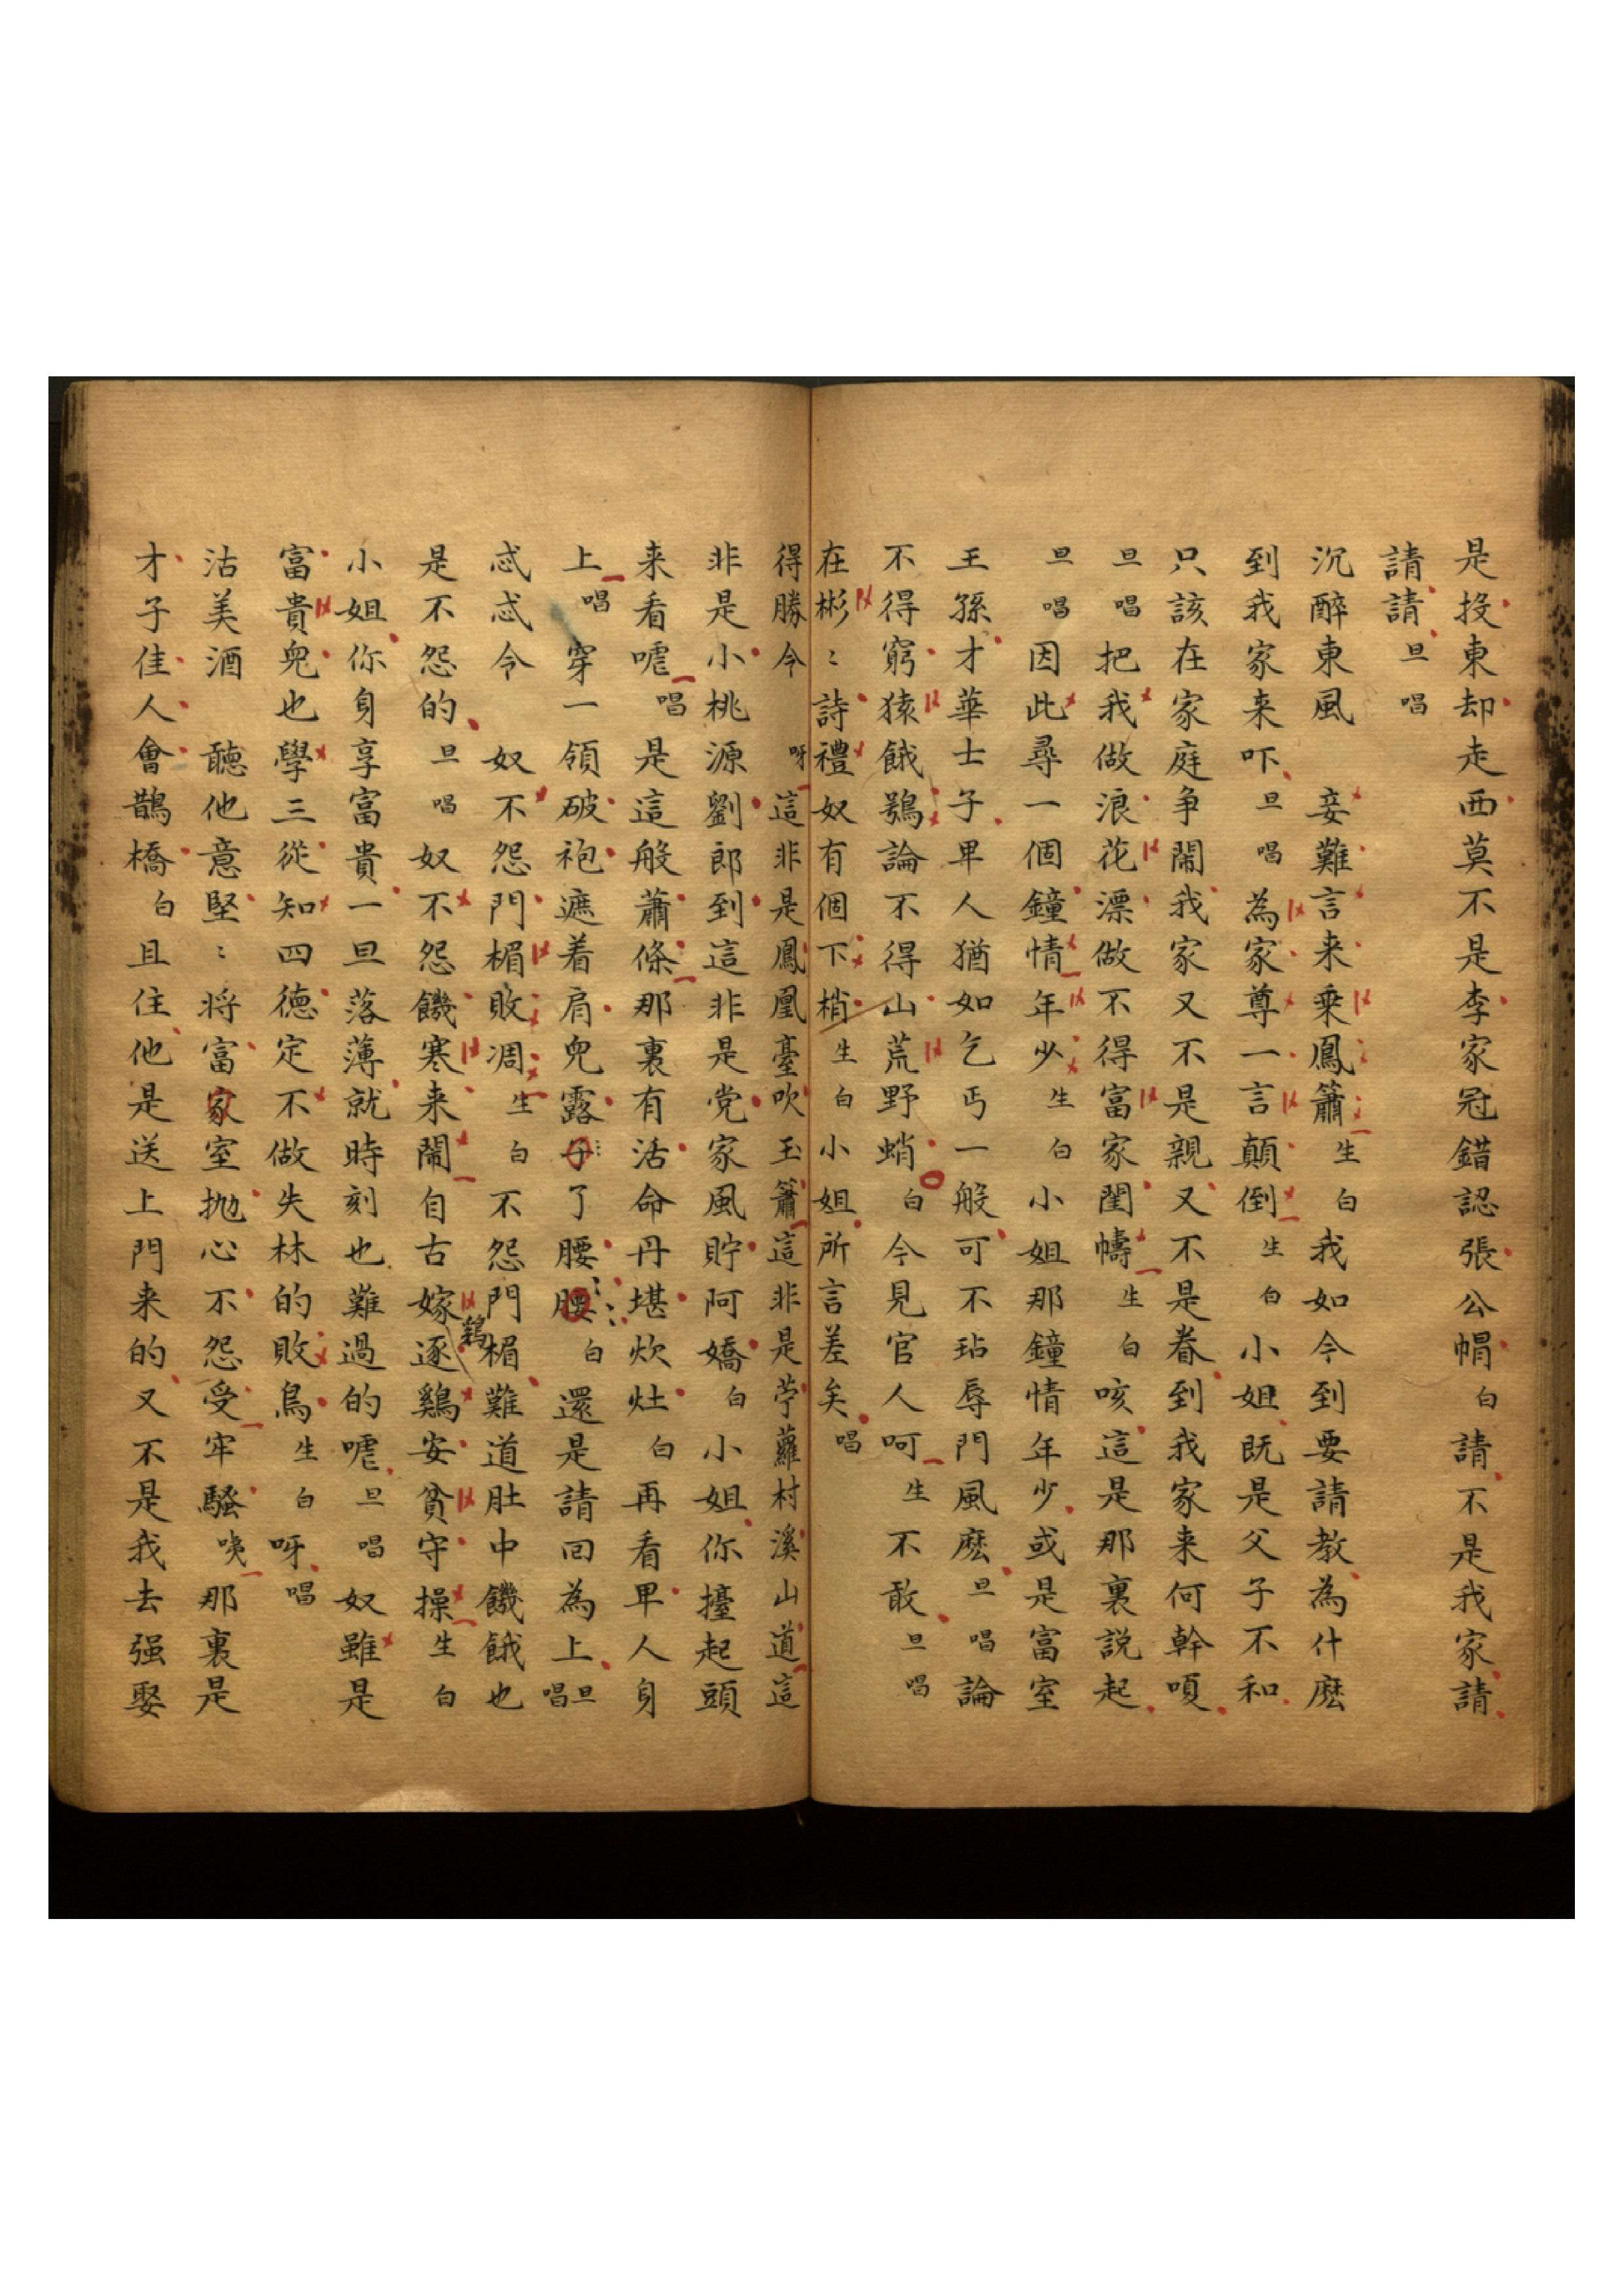 是投東却走西莫不是李家冠錯認張公帽白請不是我家請
請請旦唱
沉醉東風　妾難言来乘鳳簫生白我如今到要請教為什麽
到我家来吓旦唱為家尊一言顛倒生白小姐既是父子不和
只該在家庭争鬧我家又不是親又不是眷到我家来何幹嗄
旦唱把我做浪花漂做不得富家閨幬生白咳這是那裏説起
旦唱因此尋一個鐘情年少生白小姐那鐘情年少或是富室
王孫才華士子卑人猶如乞丐一般可不玷辱門風麽旦唱論
不得窮猿餓鴞論不得山荒野蛸白今見官人呵生不敢旦唱
在彬〻詩禮奴有個下梢生白小姐所言差矣唱
得勝令　呀這非是鳳凰臺吹玉簫這非是苧蘿村溪山道這
非是小桃源劉郎到這非是党家風貯阿嬌白小姐你擡起頭
来看嘘唱是這般蕭條那裏有活命丹堪炊灶白再看卑人身
上唱穿一領破袍遮着肩兒露子了腰腰白還是請回為上旦唱
忒忒令　奴不怨門楣敗凋生白不怨門楣難道肚中饑餓也
是不怨的旦唱奴不怨饑寒来鬧自古嫁鷄逐鷄安貧守操生白
小姐你身享富貴一旦落薄就時刻也難過的嘘旦唱奴雖是
富貴兒也學三從知四德定不做失林的敗鳥生白呀唱
沽美酒　聽他意堅〻将富家室抛心不怨受牢騷咦那裏是
才子佳人會鵲橋白且住他是送上門来的又不是我去强娶